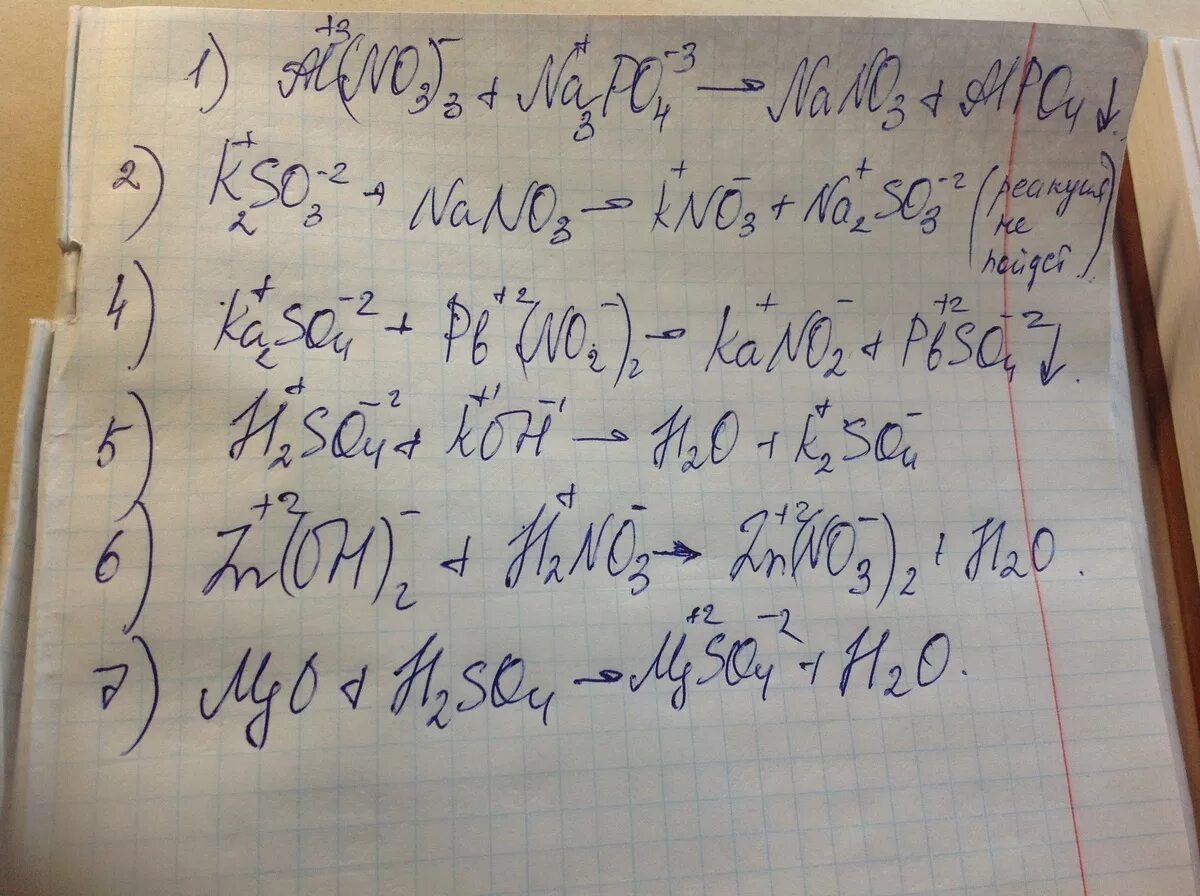 1) Al⁺³(NO₃)⁻₃ + Na⁺₃PO₄⁻³ → NaNO₃ + AlPO₄↓.
2) K⁺₂SO₃⁻² + NaNO₃ → K⁺NO₃⁻ + Na⁺₂SO₃⁻² (реакция не пойдет).
4) Ka⁺₂SO₄⁻² + Pb⁺²(NO₂⁻)₂ → Ka⁺NO₂⁻ + Pb⁺²SO₄⁻²↓.
5) H⁺₂SO₄⁻² + K⁺¹OH⁻¹ → H₂O + K⁺₂SO₄⁻
6) Zn⁺²(OH)⁻₂ + H⁺₂NO₃⁻ → Zn⁺²(NO₃⁻)₂ + H₂O.
7) MgO + H₂SO₄ → Mg⁺²SO₄⁻² + H₂O.